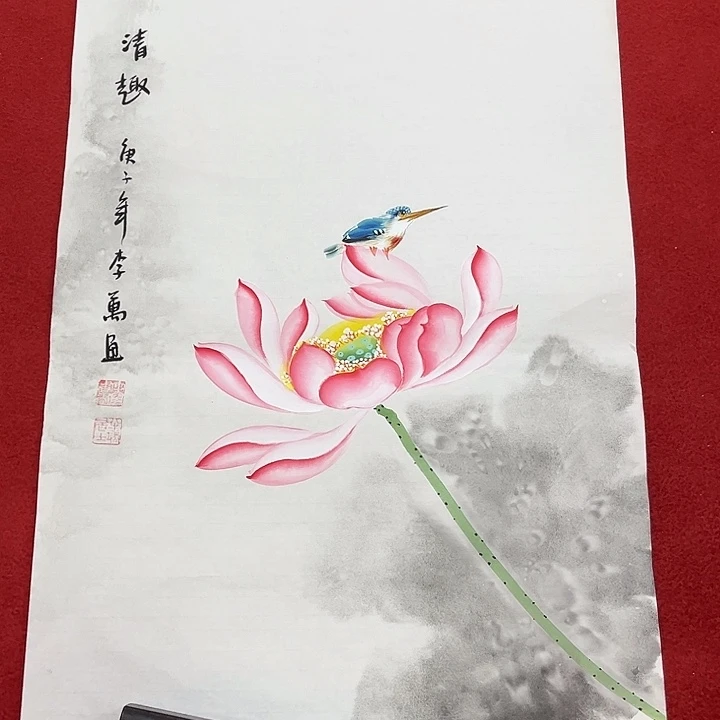 清趣 庚子年 李萬